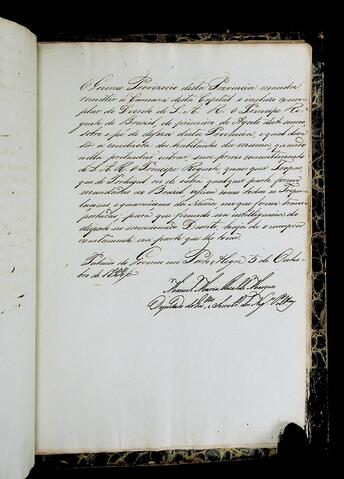 O Governo Provizorio desta Provincia manda
remetter á Camara desta Capital o incluzo exem-
plar do Decreto de S. A. R. o Principe Re-
gente do Brazil, do primeiro de Agosto deste anno
sobre o pé de defeza desta Provincia, e qual deve
ser a conducta dos habitantes da mesma quando
nella pretendão entrar, sem previo consentimento
de S. A. R. o Principe Regente quaesquer Tropas,
que de Portugal ou de outra qualquer parte forem
mandadas ao Brazil, assim como todas as Tripu-
laçoens e guarniçoens dos Navios em que forem trans-
portadas, para que ficando na intelligencia do
disposto no mencionado Decreto, haja de o cumprir
exactamente na parte que lhe toca.
Palacio do Governo em Porto Alegre 5 de Outu-
bro de
Manoel Maria Marques
Deputado